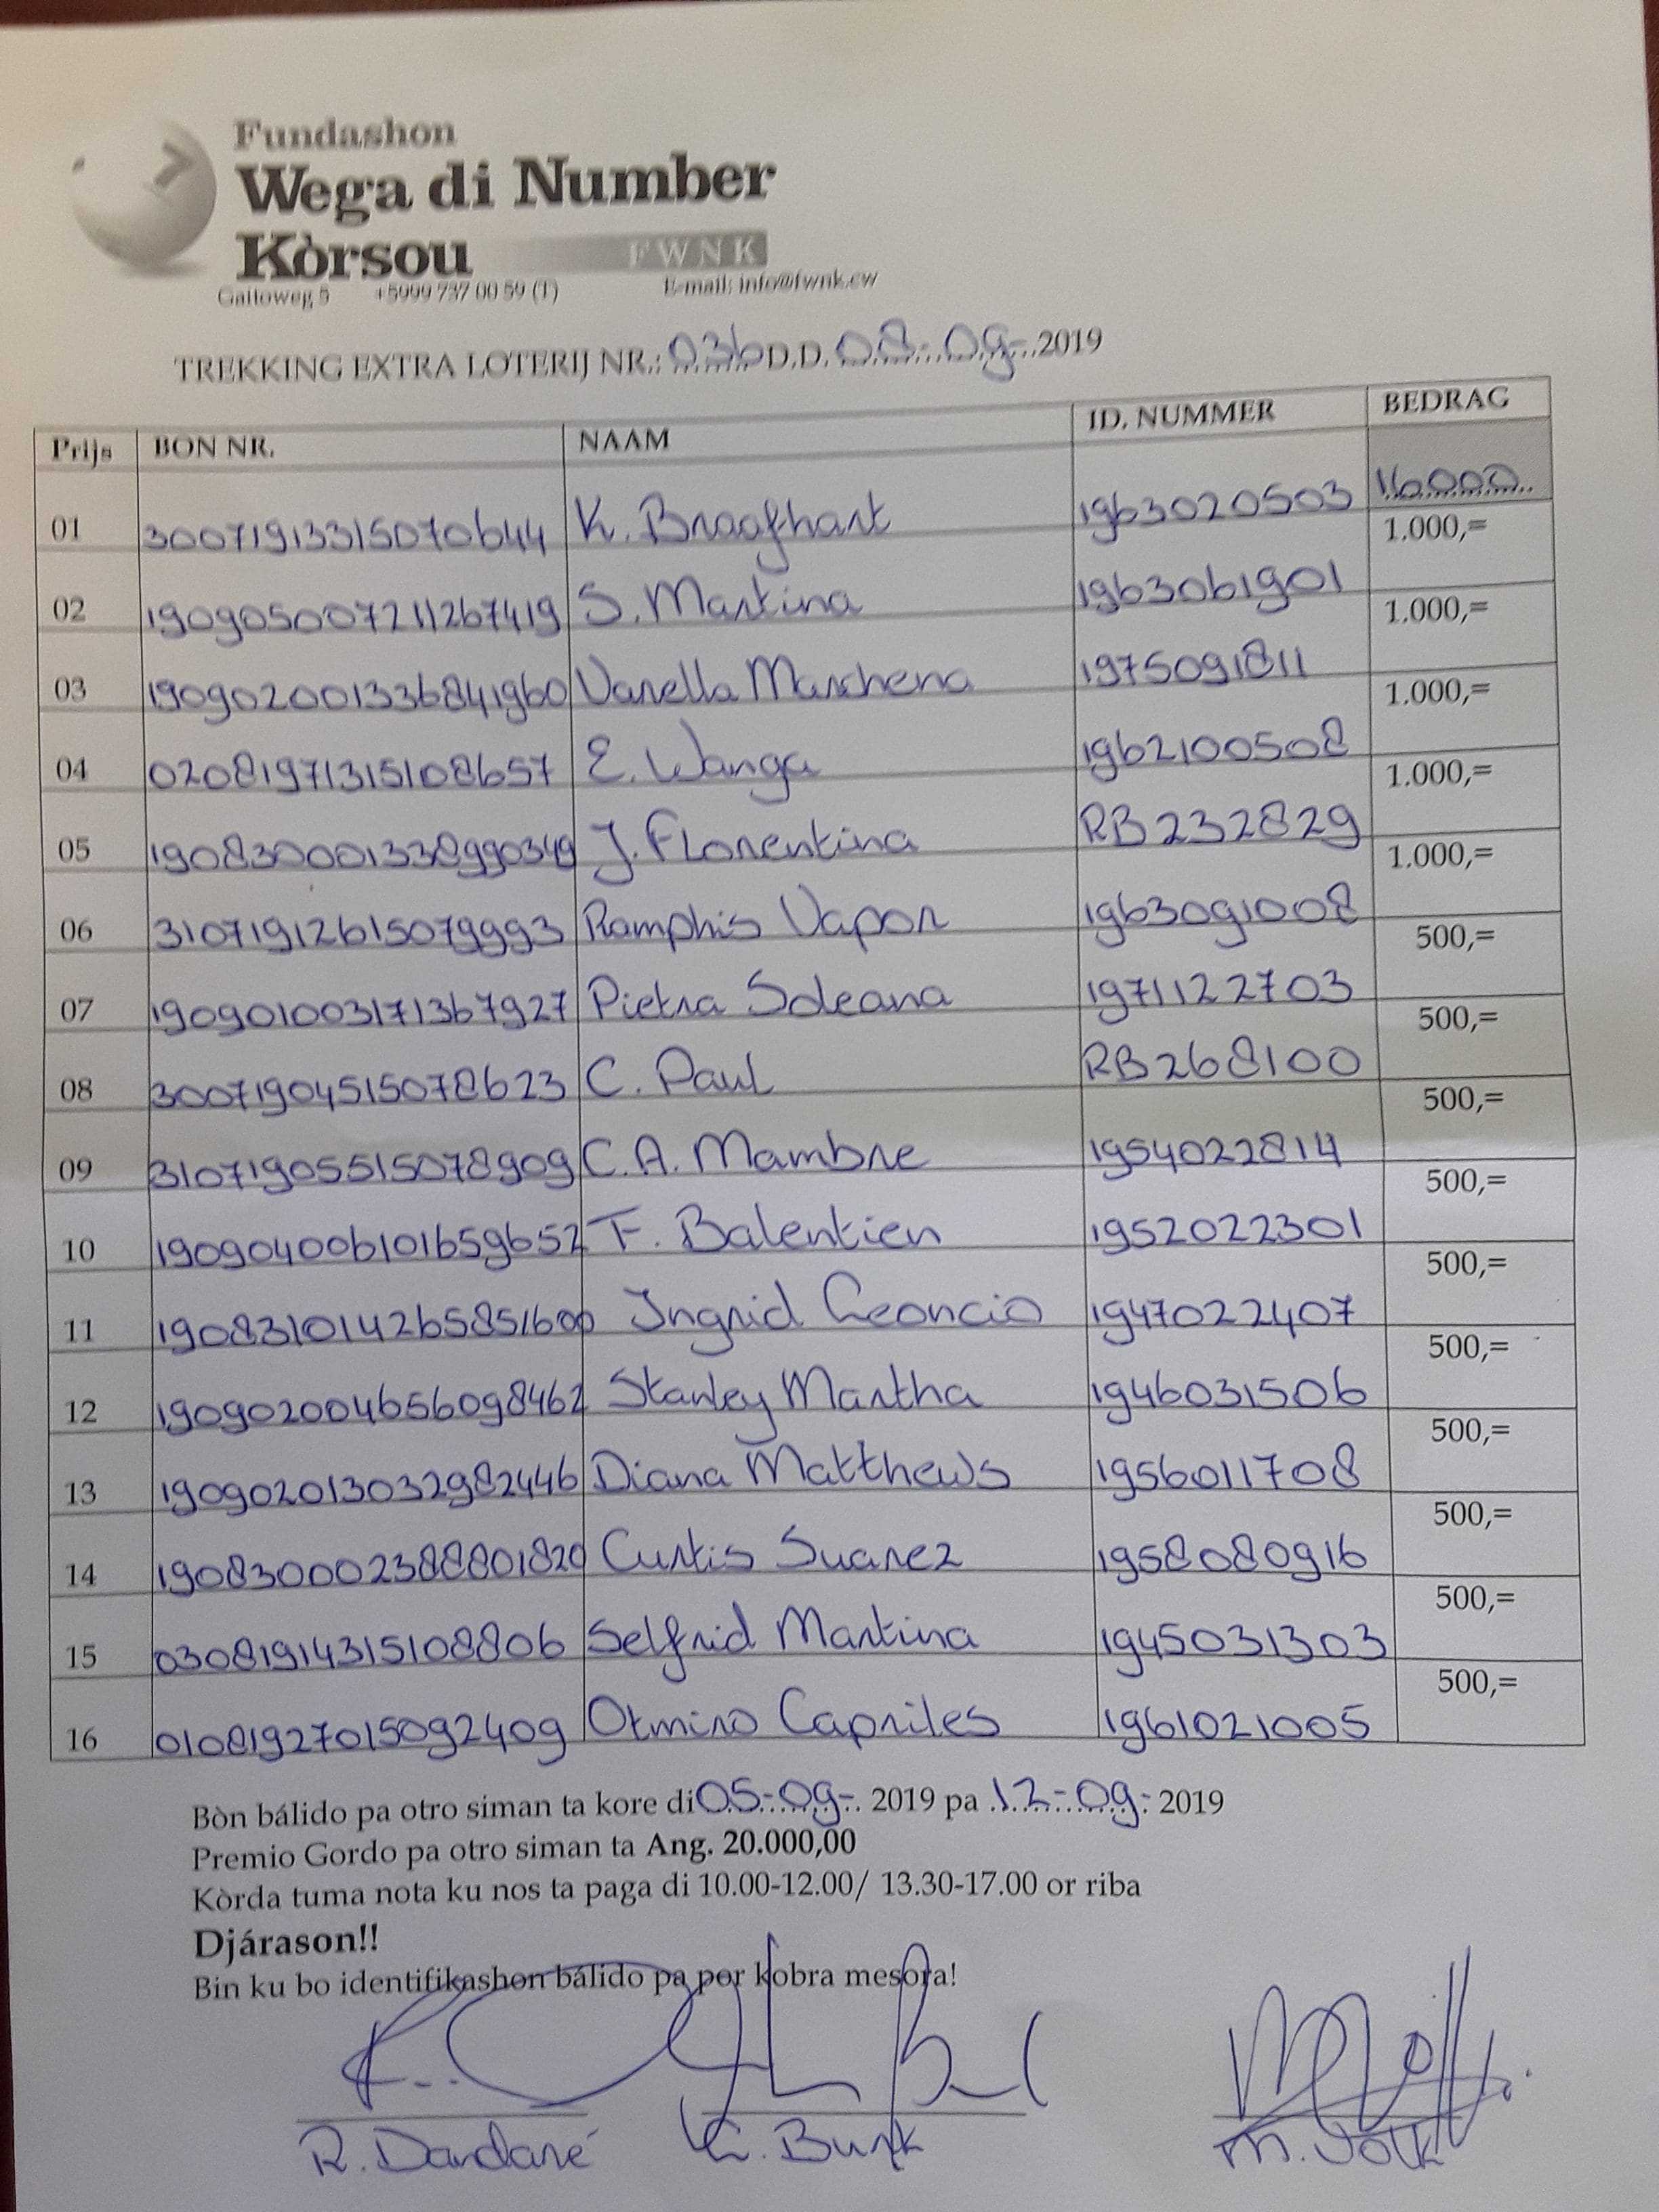 Fundashon
Wega di Number
Kòrsou FWNK
Gaitoweg 5 +5999 737 00 59 (T) E-mail: info@fwnk.cw
TREKKING EXTRA LOTERIJ NR.: 036 D.D. 08-09-2019
Prijs BON NR. NAAM ID. NUMMER BEDRAG
16.000
01 30071913315070644 K. Braafhart 1963020503 1.000,=
02 190905007211267419 S. Martina 1963061901 1.000,=
03 190902001336841960 Vanella Marchena 1975091811 1.000,=
04 02081971315108657 E. Wanga 1962100508 1.000,=
05 190830001338990349 J. Florentina RB232829 1.000,=
06 31071912615079993 Ramphis Vapor 1963091008 500,=
07 190901003171367927 Pietra Soleana 1971122703 500,=
08 30071904515078623 C. Paul RB268100 500,=
09 31071905515078909 C.A. Mambre 1954022814 500,=
10 190904006101659652 F. Balentien 1952022301 500,=
11 Ingrid Leoncio 1947022407 500,=
12 190902004656098462 Stanley Martha 1946031506 500,=
13 190902013032982446 Diana Matthews 1956011708 500,=
14 190830002388801820 Curtis Suarez 1958080916 500,=
15 03081914315108806 Selfrid Martina 1945031303 500,=
16 01081927015092409 Otmiro Capriles 1961021005
Bòn bálido pa otro siman ta kore di 05-09-2019 pa 12-09-2019
Premio Gordo pa otro siman ta Ang. 20.000,00
Kòrda tuma nota ku nos ta paga di 10.00-12.00/ 13.30-17.00 or riba
Djárason!!
Bin ku bo identifikashon bálido pa por kobra mesora!
R. Dardané